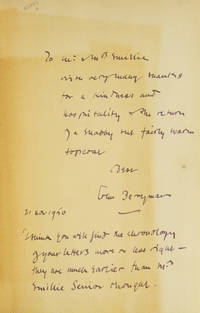 To Mr & Mrs Smillie
with very many thanks
for a kindness and
hospitality & the return
of a shabby but fairly warm
topcoat
Best
John Berryman
21 Nov 1960
I think you will find the chronology
of your letters more or less right –
they are much earlier than Mr
Smillie Senior thought.